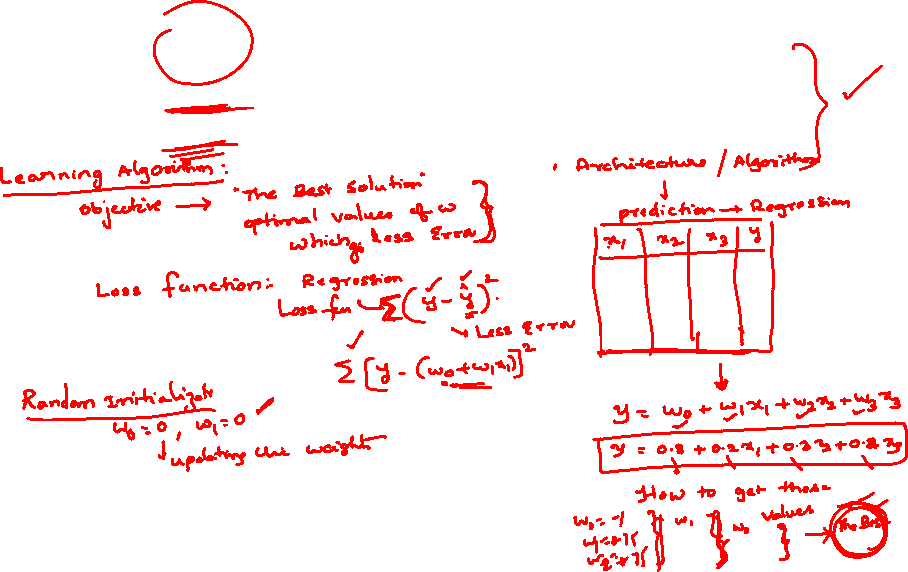 Learning Algorithm:
objective → "The Best Solution"
optimal values of w
which gs less Error
Loss function: Regression
Loss fun → Σ(y - ŷ)²
↳ Less Error
Σ[y - (w₀+w₁x₁)]²
Random Initializat
w₀=0, w₁=0
↓ updating the weights
Architecture / Algorithm
↓
prediction → Regression
x₁ x₂ x₃ y
↓
y = w₀ + w₁x₁ + w₂x₂ + w₃x₃
How to get these
values
w₁
→ The Best